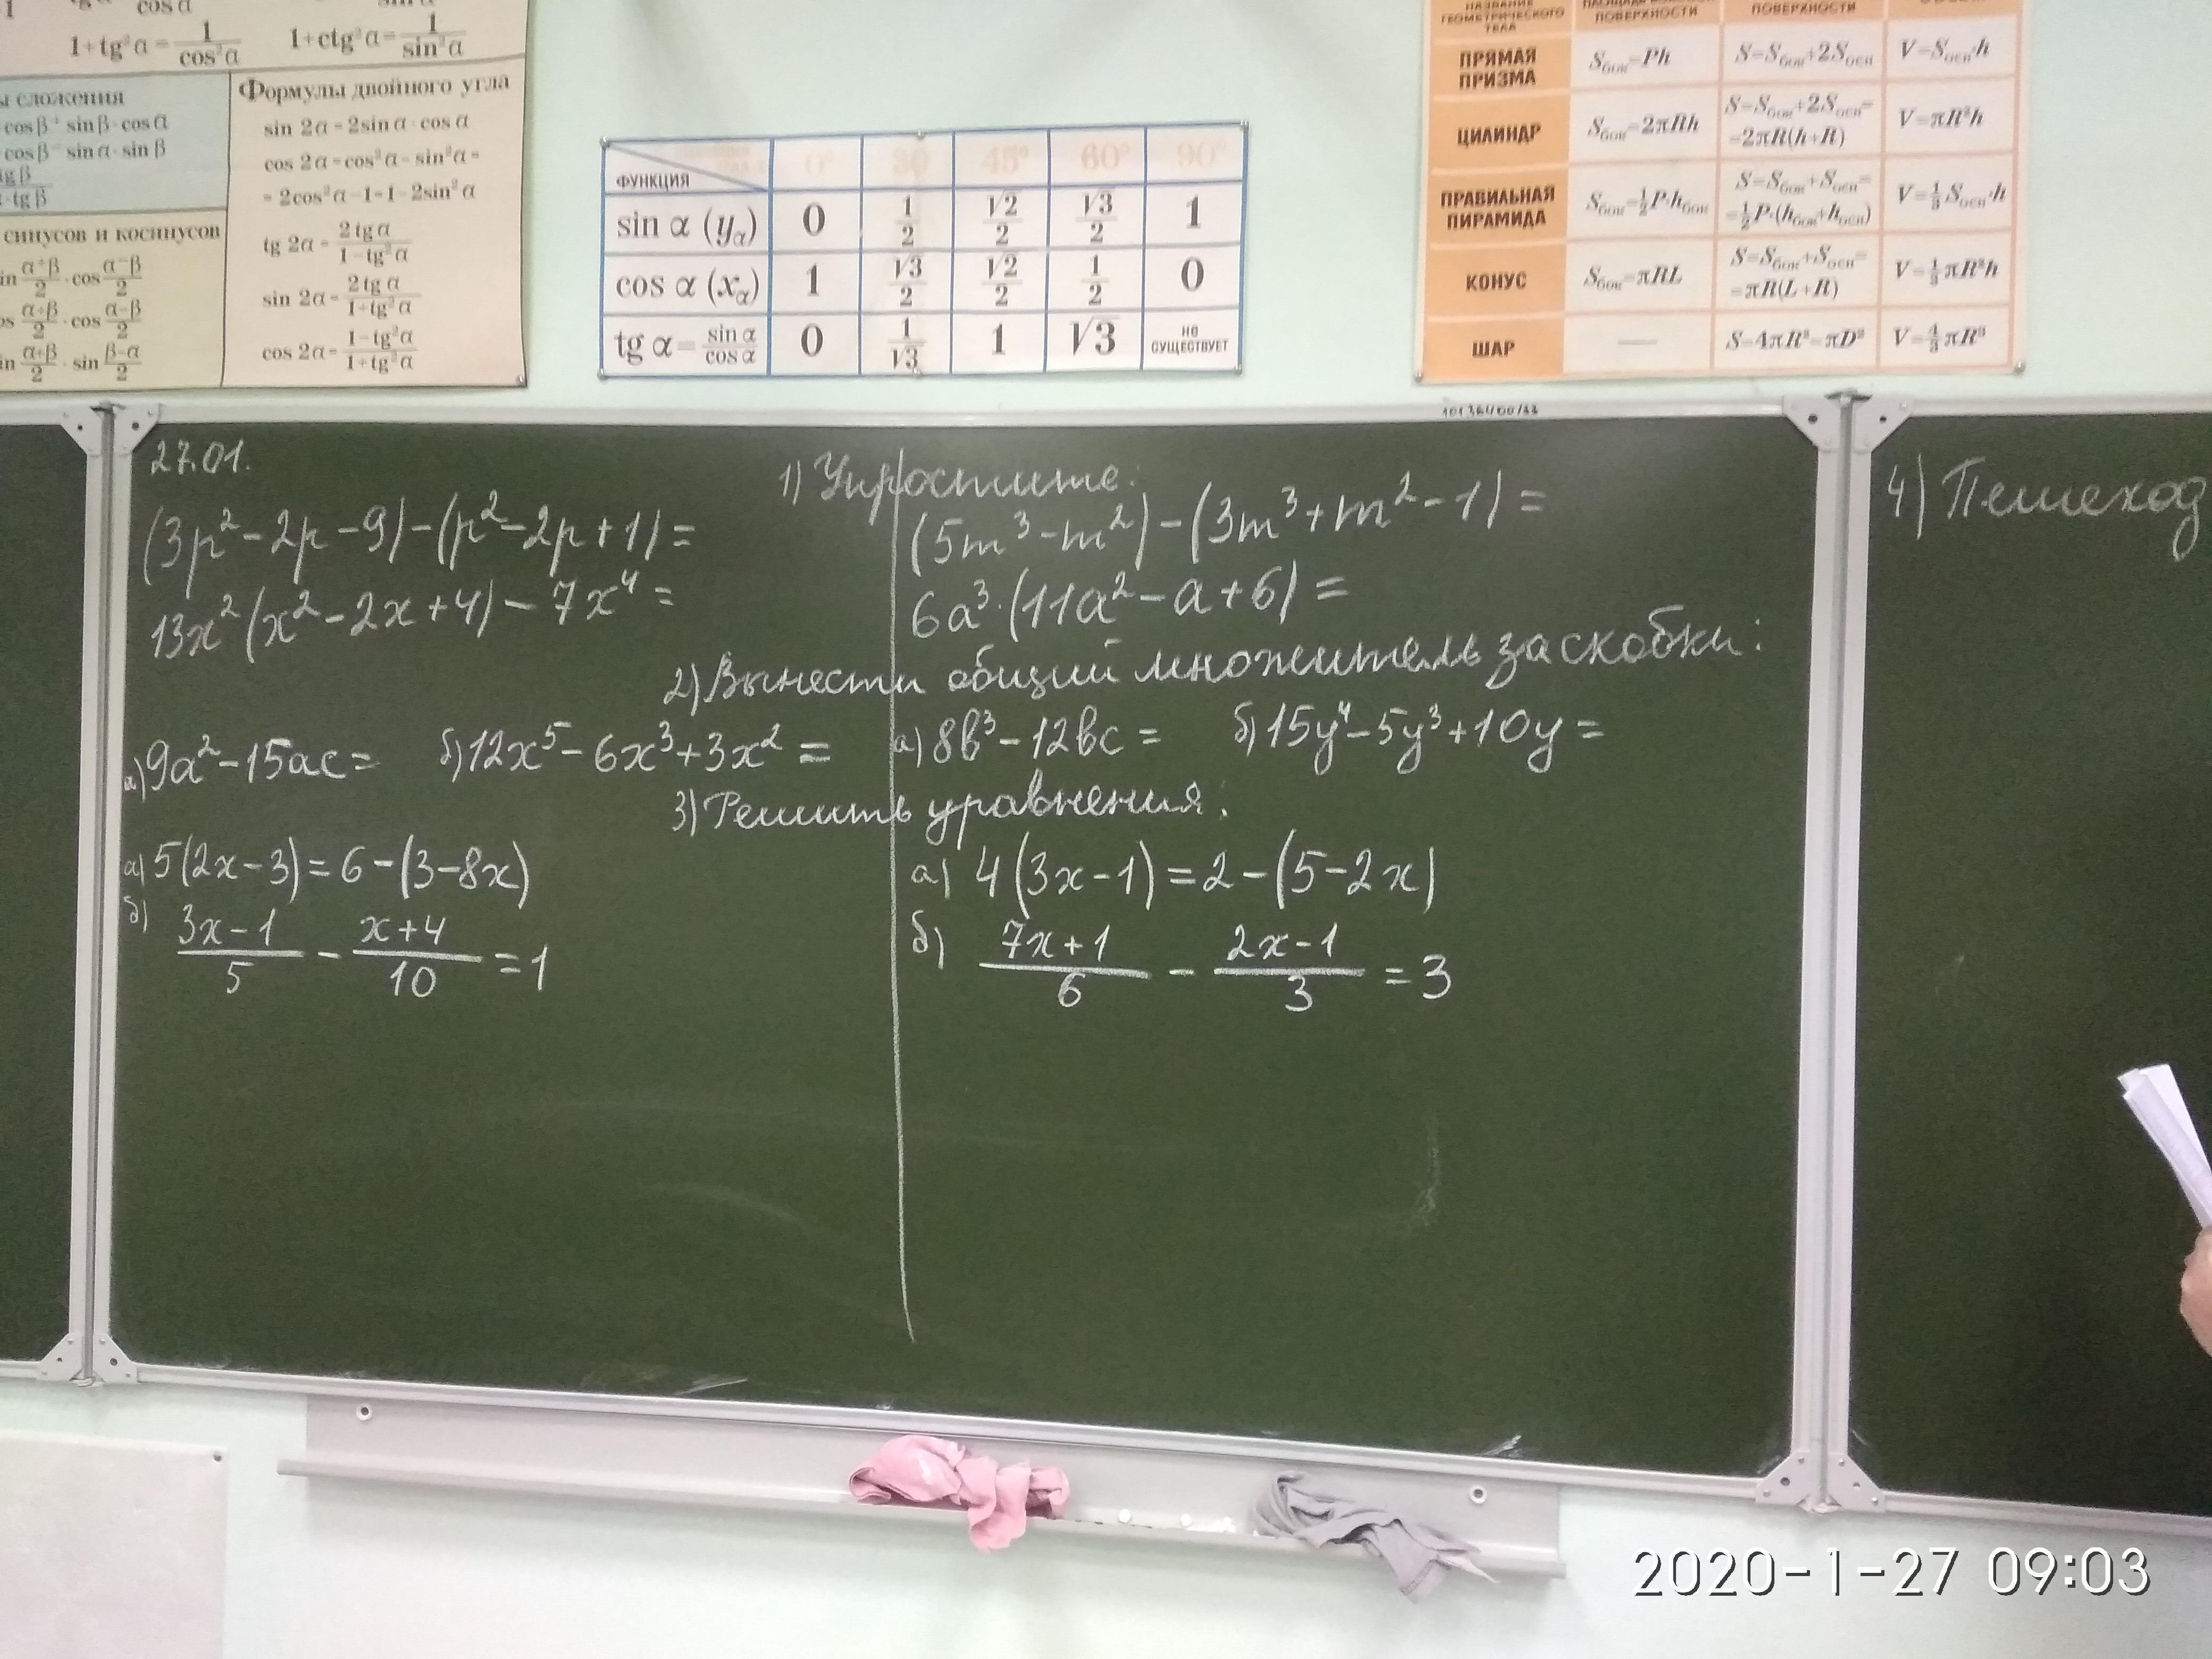 1 cos α sin α
1+tg²α=1/cos²α 1+ctg²α=1/sin²α
ы сложения
cosβ+sinβ·cosα
cosβ-sinα·sinβ
tgβ
·tgβ
синусов и косинусов
in (α+β)/2 · cos (α-β)/2
os (α+β)/2 · cos (α-β)/2
in (α+β)/2 · sin (β-α)/2
Формулы двойного угла
sin 2α=2sin α·cos α
cos 2α=cos²α-sin²α=
=2cos²α-1=1-2sin²α
tg 2α=2tg α/(1-tg²α)
sin 2α=2tg α/(1+tg²α)
cos 2α=(1-tg²α)/(1+tg²α)
ФУНКЦИЯ 0° 30 45° 60° 90°
sin α (yα) 0 1/2 √2/2 √3/2 1
cos α (xα) 1 √3/2 √2/2 1/2 0
tg α=sin α/cos α 0 1/√3 1 √3 НЕ СУЩЕСТВУЕТ
НАЗВАНИЕ ГЕОМЕТРИЧЕСКОГО ТЕЛА ПОВЕРХНОСТИ ПОВЕРХНОСТИ
ПРЯМАЯ ПРИЗМА Sбок=Ph S=Sбок+2Sосн V=Sосн·h
ЦИЛИНДР Sбок=2πRh S=Sбок+2Sосн= =2πR(h+R) V=πR²h
ПРАВИЛЬНАЯ ПИРАМИДА Sбок=1/2P·hбок S=Sбок+Sосн= =1/2P·(hбок+hосн) V=1/3Sосн·h
КОНУС Sбок=πRL S=Sбок+Sосн= =πR(L+R) V=1/3πR²h
ШАР — S=4πR²=πD² V=4/3πR³
27.01.
1) Упростите:
(3p²-2p-9)-(p²-2p+1)=
(5m³-m²)-(3m³+m²-1)=
13x²(x²-2x+4)-7x⁴=
6a³·(11a²-a+6)=
2) Вынести общий множитель за скобки:
а) 9a²-15ac= б) 12x⁵-6x³+3x²=
а) 8b³-12bc= б) 15y⁴-5y³+10y=
3) Решить уравнения:
а) 5(2x-3)=6-(3-8x)
а) 4(3x-1)=2-(5-2x)
б) (3x-1)/5 - (x+4)/10 =1
б) (7x+1)/6 - (2x-1)/3 =3
4) Пешеход
2020-1-27 09:03